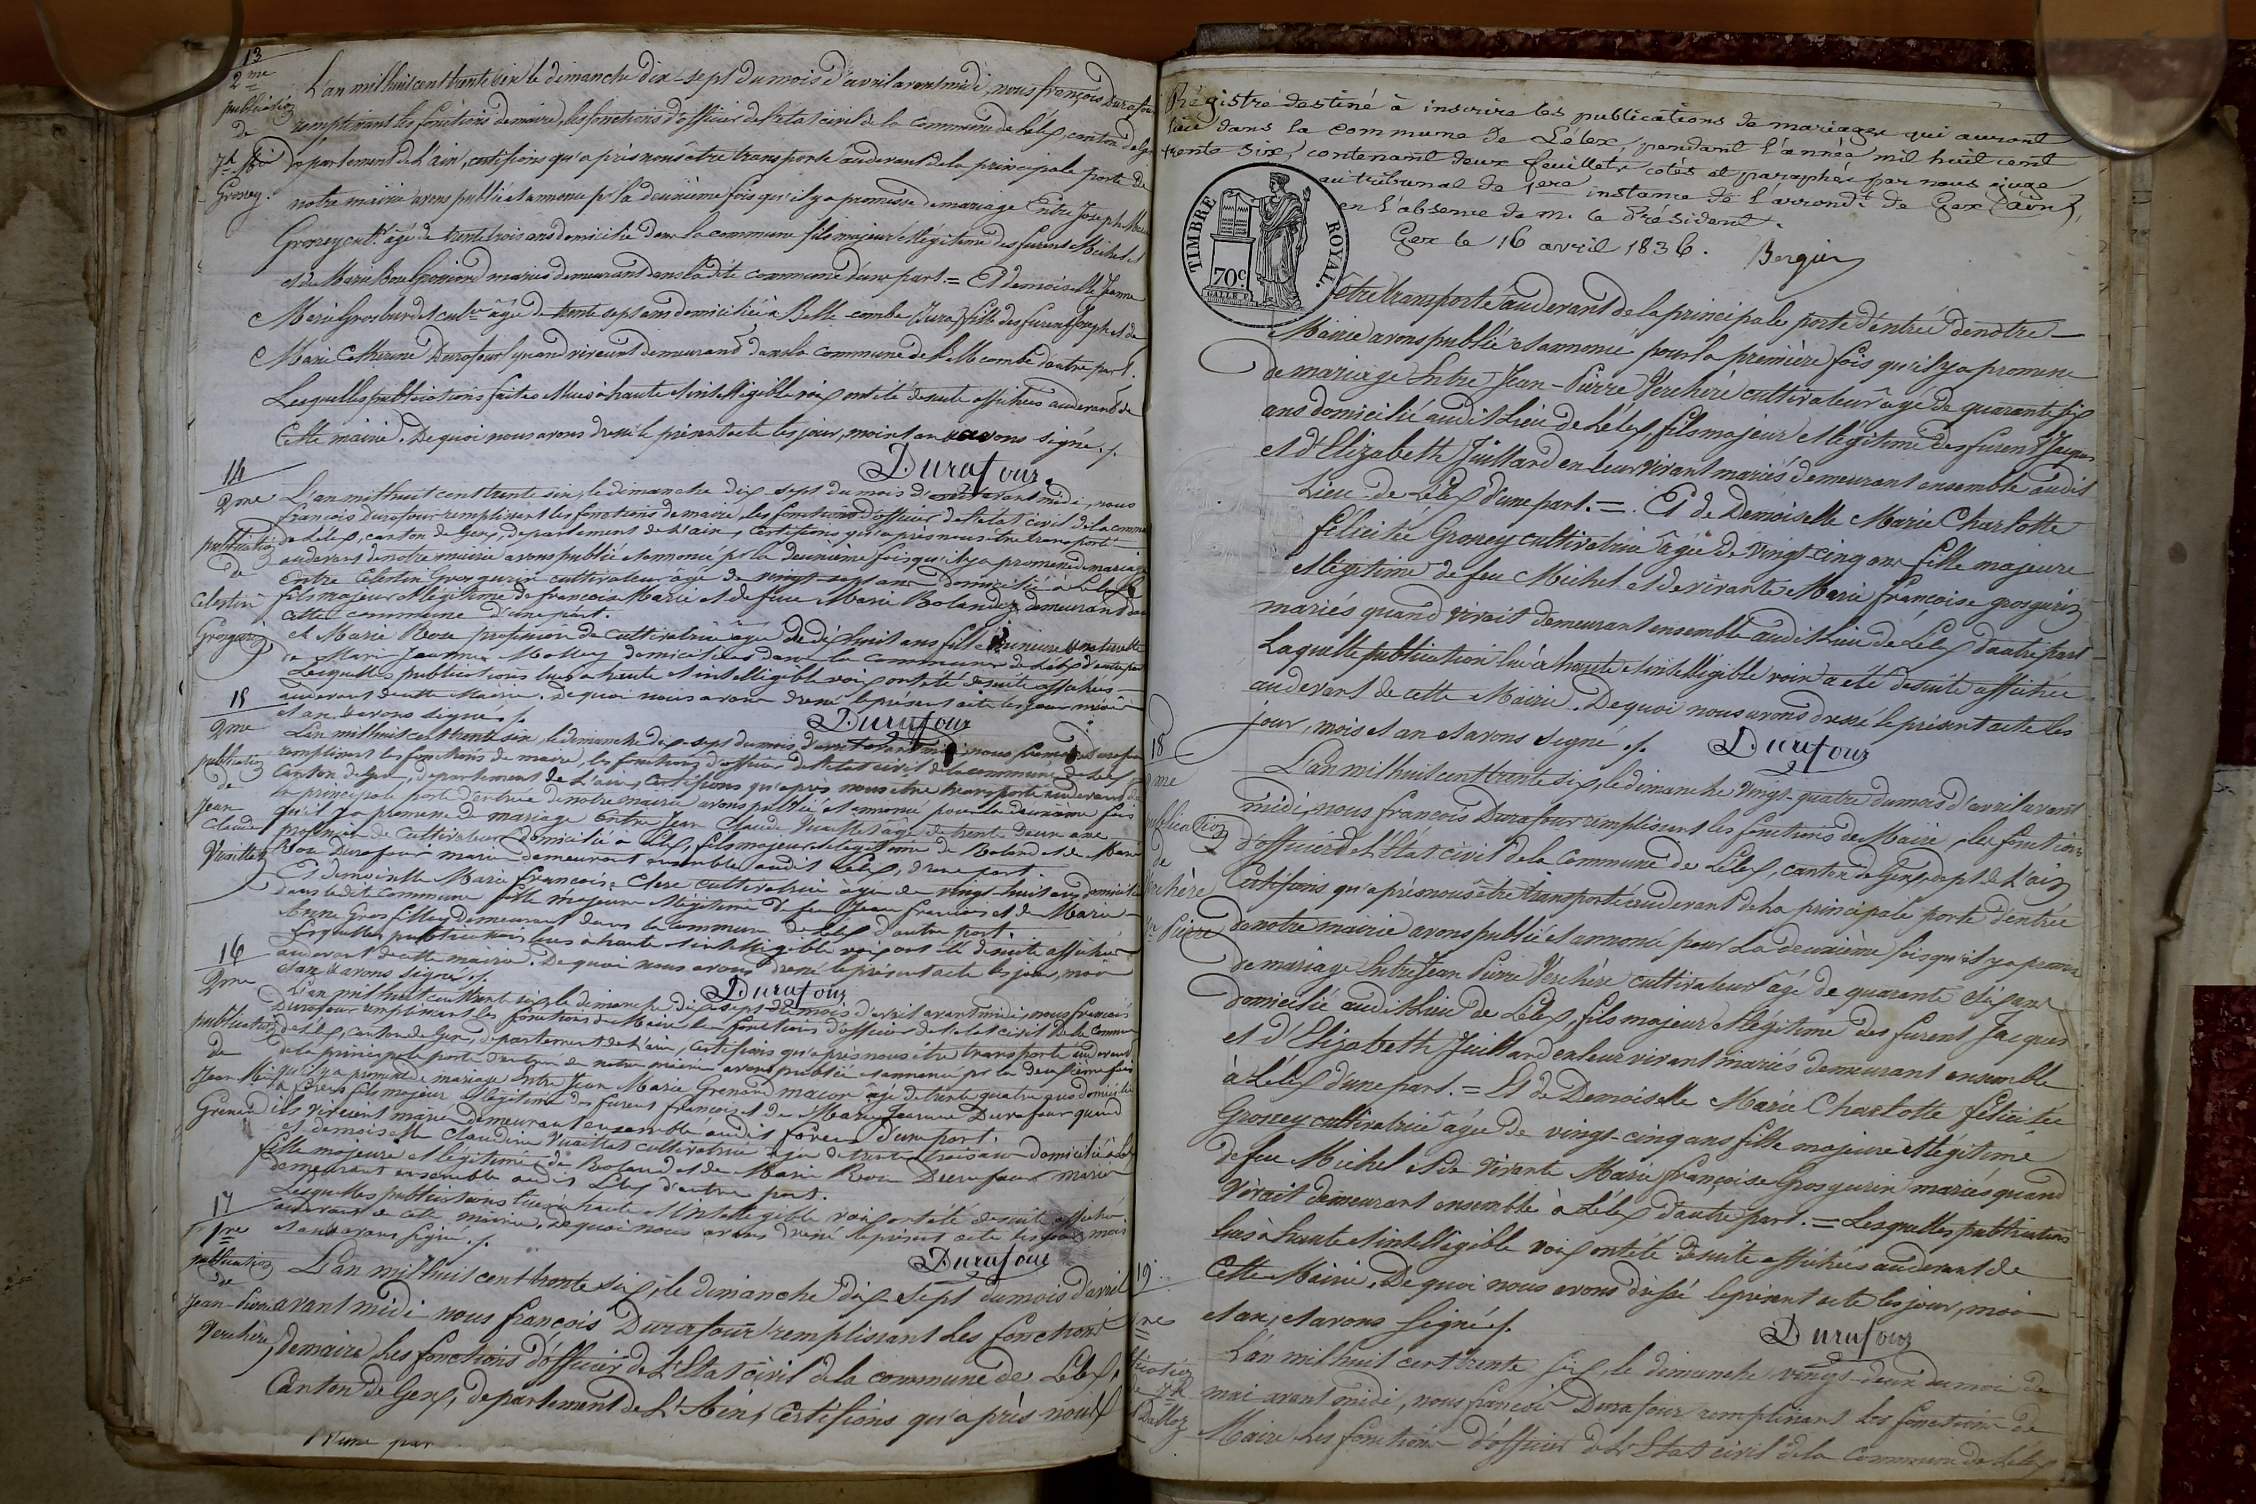 13
2me
publication
de
Jh Mie
Grosrey.
L'an mil huit cent trente six le dimanche dix-sept du mois d'avril avant midi, nous françois Durafour
remplissant les fonctions de maire, les fonctions d'officier de l'etat civil de la commune de Lélex, canton de Gex
departement de l'ain, certifions qu'après nous être transporté au devant de la principale porte de
notre mairie avons publié et annoncé pr la deuxième fois qu'il y a promesse de mariage Entre Joseph Marie
Grosrey cultr. âgé de trente trois ans domicilié dans la commune fils majeur et légitime des furent Michel et
et de Marie Rose mariés demeurant dans la dite commune d'une part. = Et demoiselle Jeanne
Marie Grosburdet cultce âgée de trente sept ans domiciliée à Belle-combe (Jura) fille des furent Joseph et de
Marie Catherine Durafour quand vivaient demeurant dans la commune de Bellecombe d'autre part.
Lesquelles publications faites et lues à haute et intelligible voix ont été de suite affichées au devant de
Cette mairie. De quoi nous avons dressé le présent acte les jour, mois et an et avons signé ./.
Durafour
14
2me
publication
de
Celestin
Grosgurin
L'an mil huit cent trente six, le dimanche dix-sept du mois d'avril avant midi, nous
françois Durafour remplissant les fonctions de maire, les fonctions d'officier de l'etat civil de la commune
de Lélex, canton de Gex, departement de l'ain, certifions qu'après nous être transporté
au devant de notre mairie avons publié et annoncé pr la deuxième fois qu'il y a promesse de mariage
entre Celestin Grosgurin cultivateur âgé de vingt-sept ans domicilié à Lélex
fils majeur et légitime de françois Marie et de feue Marie Rolandez demeurant dans
cette commune d'une part.
et Marie Rose profession de cultivatrice âgée de dix huit ans fille mineure et naturelle
de Marie Jeanne domiciliées dans la commune de Lélex d'autre part
Lesquelles publications lues à haute et intelligible voix ont été de suite affichées
au devant de cette Mairie. De quoi nous avons dressé le présent acte les jour mois
et an et avons signé ./.
Durafour
15
2me
publication
de
Jean
Claude
Vuaillat
L'an mil huit cent trente six, le dimanche dix-sept du mois d'avril avant midi, nous françois Durafour
remplissant les fonctions de maire, les fonctions d'officier de l'etat civil de la commune de Lélex
Canton de Gex, departement de l'ain, Certifions qu'après nous être transporté au devant de
la principale porte d'entrée de notre mairie avons publié et annoncé pour la deuxième fois
qu'il y a promesse de mariage entre Jean Claude Vuaillat âgé de trente deux ans
profession de Cultivateur domicilié à Lélex, fils majeur et légitime de Roland et de Marie
Rose Durafour mariés demeurant ensemble audit Lélex, d'une part
Et demoiselle Marie françoise cultivatrice âgée de vingt-huit ans domiciliée
dans ladite commune fille majeure et légitime de feu Jean françois et de Marie
Anne Gros demeurant dans la commune de Lélex d'autre part.
Lesquelles publications lues à haute et intelligible voix ont été de suite affichées
au devant de cette mairie. De quoi nous avons dressé le présent acte les jour, mois
et an et avons signé ./.
Durafour
16
2me
publication
de
Jean Mie
Grenard
L'an mil huit cent trente six le dimanche dix sept du mois d'avril avant midi, nous françois
Durafour remplissant les fonctions de Maire les fonctions d'officier de l'etat civil de la commune
de Lélex, canton de Gex, departement de l'ain, certifions qu'après nous être transporté au devant
de la principale porte d'entrée de notre mairie avons publié et annoncé pr la deuxième fois
qu'il y a promesse de mariage Entre Jean Marie Grenard maçon âgé de trente quatre ans domicilié
à forens fils majeur et légitime des furent françois et de Marie Jeanne Durafour quand
ils vivaient mariés demeurant ensemble audit forens d'une part.
et demoiselle Claudine Vuaillat cultivatrice âgée de trente trois ans domiciliée à Lélex
fille majeure et légitime de Roland et de Marie Rose Durafour mariés
demeurant ensemble audit Lélex d'autre part.
Lesquelles publications lues à haute et intelligible voix ont été de suite affichées
au devant de cette mairie, De quoi nous avons dressé le présent acte les jour, mois
et an et avons signé ./.
Durafour
17
1re
publication
de
Jean-Pierre
Verchère
L'an mil huit cent trente six, le dimanche dix-sept du mois d'avril
avant midi nous françois Durafour remplissant les fonctions
de maire les fonctions d'officier de l'Etat civil de la commune de Lélex,
Canton de Gex, departement de l'Ain, Certifions qu'après nous
Régistre destiné à inscrire les publications de mariages qui auront
lieu dans la commune de Lélex, pendant l'année mil huit cent
trente six, contenant deux feuillets cotés et paraphés par nous juge
au tribunal de 1ere instance de l'arrondt de Gex (ain),
en l'absence de m. le Président.
Gex le 16 avril 1836.
TIMBRE ROYAL.
70c
être transporté au devant de la principale porte d'entrée de notre
Mairie avons publié et annoncé pour la première fois qu'il y a promesse
de mariage Entre Jean-Pierre Verchère cultivateur âgé de quarante six
ans domicilié audit Lieu de Lélex, fils majeur et légitime des furent Jacques
et d'Elizabeth Juillard en leur vivant mariés demeurant ensemble audit
Lieu de Lélex d'une part. =. Et de Demoiselle Marie Charlotte
félicitée Grosrey cultivatrice âgée de vingt-cinq ans fille majeure
et légitime de feu Michel et de vivante Marie françoise grosgurin
mariés quand vivait demeurant ensemble audit Lieu de Lélex d'autre part
Laquelle publication lue à haute et intelligible voix a été de suite affichée
au devant de cette Mairie. De quoi nous avons dressé le présent acte les
jour, mois et an et avons signé ./.
Durafour
18
2me
publication
de
Verchère
Jn Pierre
L'an mil huit cent trente six, le dimanche vingt-quatre du mois d'avril avant
midi, nous françois Durafour remplissant les fonctions de Maire, les fonctions
d'officier de l'Etat civil de la commune de Lélex, canton de Gex, dept de l'ain
Certifions qu'après nous être transporté au devant de la principale porte d'entrée
de notre mairie avons publié et annoncé pour la deuxième fois qu'il y a promesse
de mariage Entre Jean Pierre Verchère cultivateur âgé de quarante six ans
domicilié audit Lieu de Lélex, fils majeur et légitime des furent Jacques
et d'Elizabeth Juillard en leur vivant mariés demeurant ensemble
à Lélex d'une part. = Et de Demoiselle Marie Charlotte félicitée
Grosrey cultivatrice âgée de vingt-cinq ans fille majeure et légitime
de feu Michel et de vivante Marie françoise Grosgurin mariés quand
vivait demeurant ensemble à Lélex d'autre part. = Lesquelles publications
lues à haute et intelligible voix ont été de suite affichées au devant de
Cette Mairie. De quoi nous avons dressé le présent acte les jour, mois
et an, et avons signé ./.
Durafour
19
L'an mil huit cent trente six, le dimanche vingt-deux du mois de
mai avant midi, nous françois Durafour remplissant les fonctions de
Maire les fonctions d'officier de l'Etat civil de la commune de Lélex